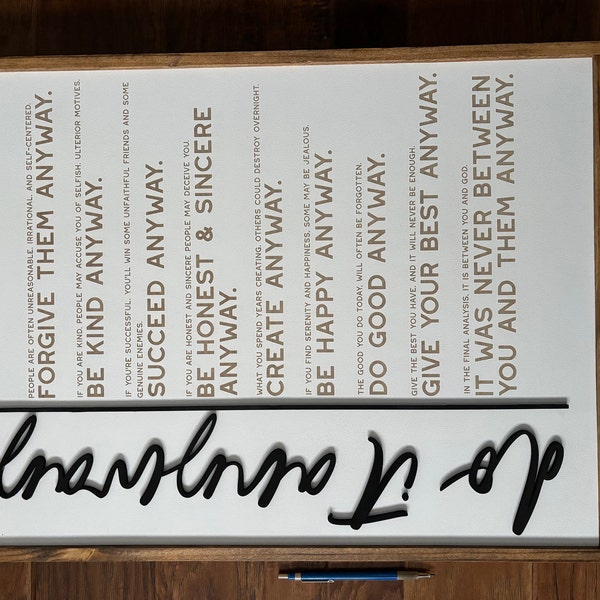 do it anyway
PEOPLE ARE OFTEN UNREASONABLE, IRRATIONAL, AND SELF-CENTERED.
FORGIVE THEM ANYWAY.
IF YOU ARE KIND, PEOPLE MAY ACCUSE YOU OF SELFISH, ULTERIOR MOTIVES.
BE KIND ANYWAY.
IF YOU'RE SUCCESSFUL, YOU'LL WIN SOME UNFAITHFUL FRIENDS AND SOME
GENUINE ENEMIES.
SUCCEED ANYWAY.
IF YOU ARE HONEST AND SINCERE PEOPLE MAY DECEIVE YOU.
BE HONEST & SINCERE
ANYWAY.
WHAT YOU SPEND YEARS CREATING, OTHERS COULD DESTROY OVERNIGHT.
CREATE ANYWAY.
IF YOU FIND SERENITY AND HAPPINESS, SOME MAY BE JEALOUS.
BE HAPPY ANYWAY.
THE GOOD YOU DO TODAY, WILL OFTEN BE FORGOTTEN.
DO GOOD ANYWAY.
GIVE THE BEST YOU HAVE, AND IT WILL NEVER BE ENOUGH.
GIVE YOUR BEST ANYWAY.
IN THE FINAL ANALYSIS, IT IS BETWEEN YOU AND GOD.
IT WAS NEVER BETWEEN
YOU AND THEM ANYWAY.